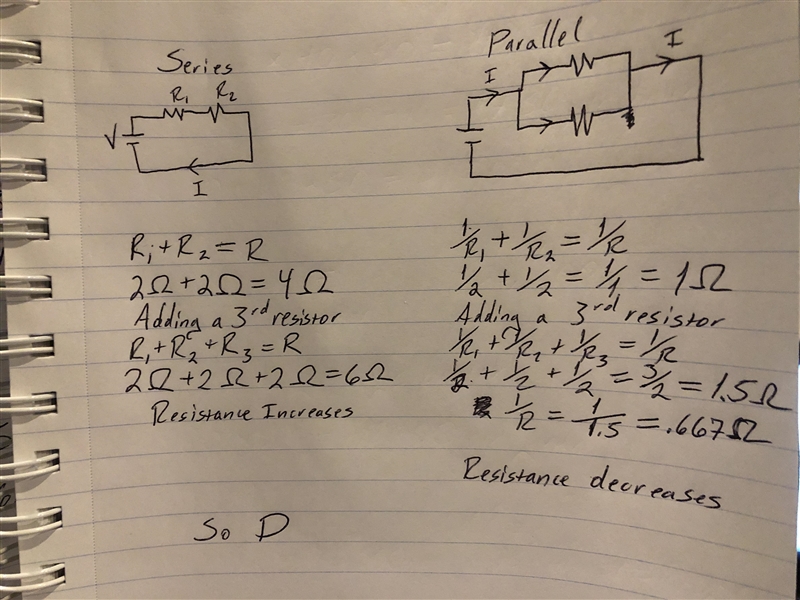 Series
R₁ R₂
V
I
R₁ + R₂ = R
2Ω + 2Ω = 4Ω
Adding a 3rd resistor
R₁ + R₂ + R₃ = R
2Ω + 2Ω + 2Ω = 6Ω
Resistance Increases
So D
Parallel
I I
1/R₁ + 1/R₂ = 1/R
1/2 + 1/2 = 1/1 = 1Ω
Adding a 3rd resistor
1/R₁ + 1/R₂ + 1/R₃ = 1/R
1/2 + 1/2 + 1/2 = 3/2 = 1.5Ω
1/R = 1/1.5 = .667Ω
Resistance decreases